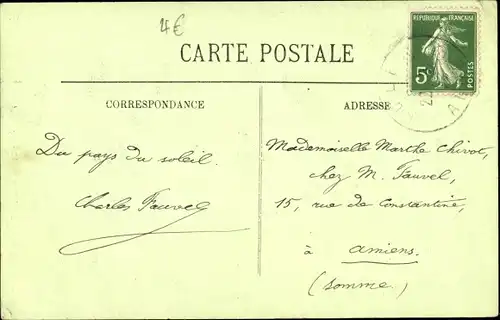 4€
CARTE POSTALE
REPUBLIQUE FRANÇAISE
5c
POSTES
CORRESPONDANCE
ADRESSE
Du pays du soleil.
Charles Fauvel
Mademoiselle Marthe Chivot,
chez M. Fauvel,
15, rue de Constantine,
à
amiens.
(somme)